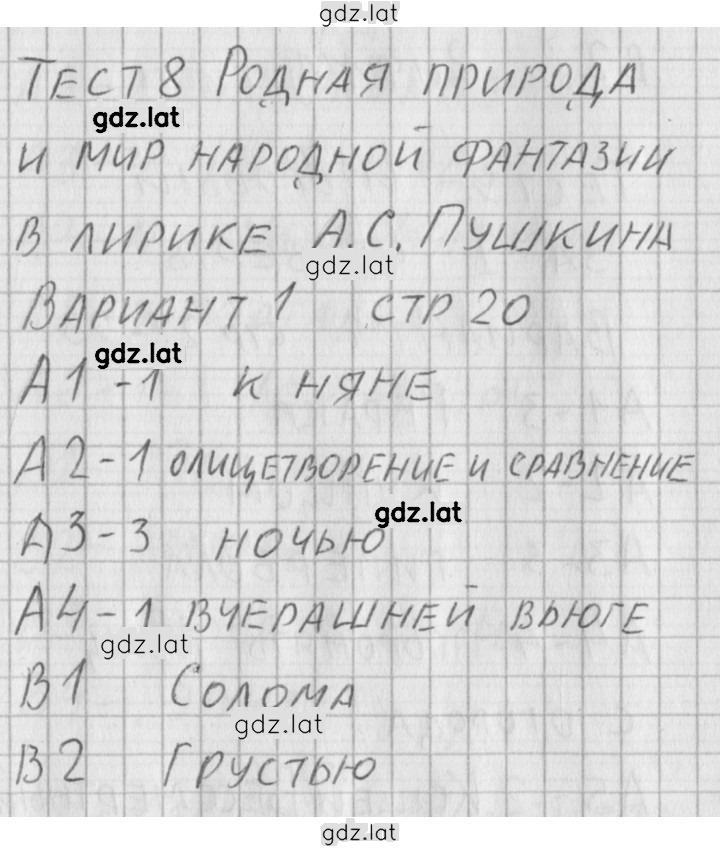 gdz.lat
Тест 8 Родная природа
gdz.lat
и мир народной фантазии
в лирике А.С. Пушкина
gdz.lat
Вариант 1 стр 20
gdz.lat
А1-1 к няне
А2-1 олицетворение и сравнение
gdz.lat
А3-3 ночью
А4-1 вчерашней вьюге
gdz.lat
В1 Солома
gdz.lat
В2 Грустью
gdz.lat